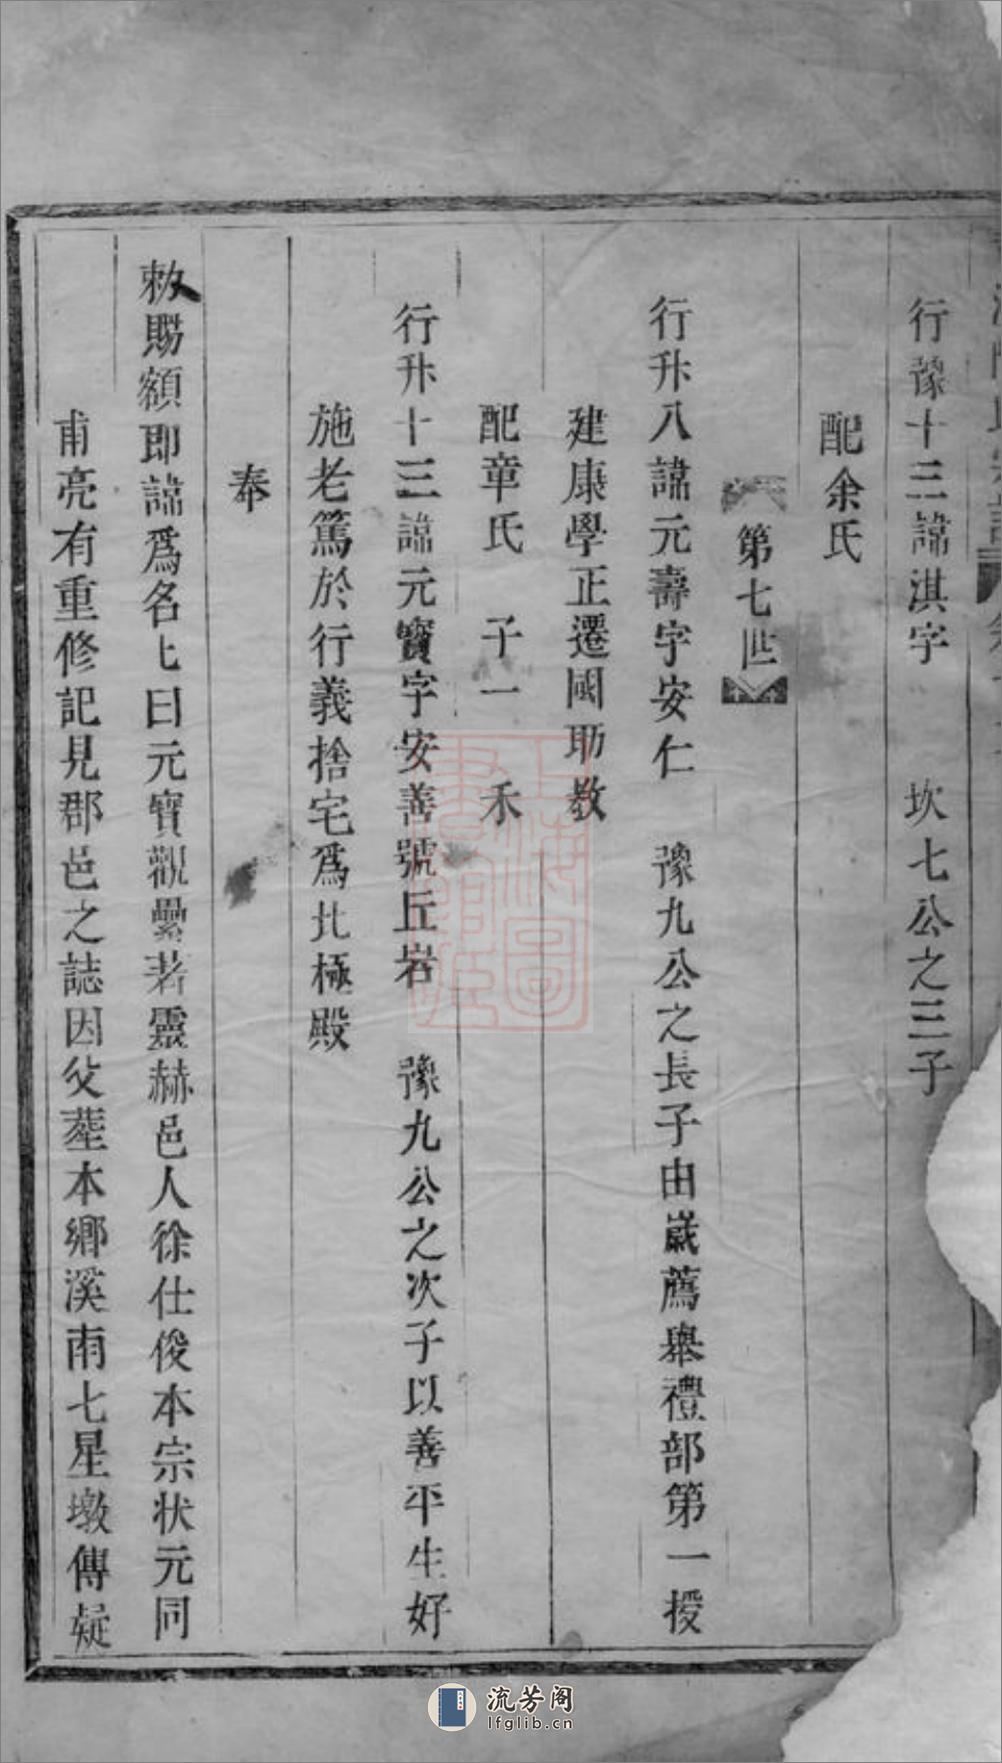 行豫十三諱淇字　坎七公之三子
配余氏
第七世
行升八諱元壽字安仁　豫九公之長子由歲薦舉禮部第一授
建康學正遷國助教
配章氏　子一　禾
行升十三諱元寶字安善號丘岩　豫九公之次子以善平生好
施老篤於行義捨宅爲北極殿
奉
敕賜額即諱爲名匕曰元寶觀纍著靈赫邑人徐仕俊本宗状元同
甫亮有重修記見郡邑之誌因父塟本鄉溪南七星墩傳疑
上海圖書館藏
流芳阁
lfglib.cn